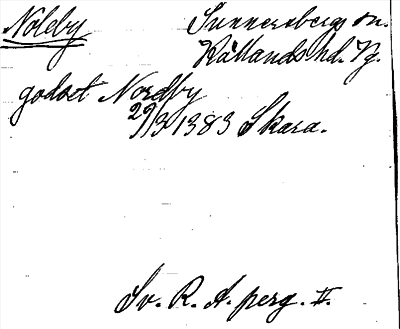 Nolby
Sunnersbergs sn.
Kållands hd. Vg.
godset Nordby
29/3 1383 Skara.
Sv. R. A. perg. II.